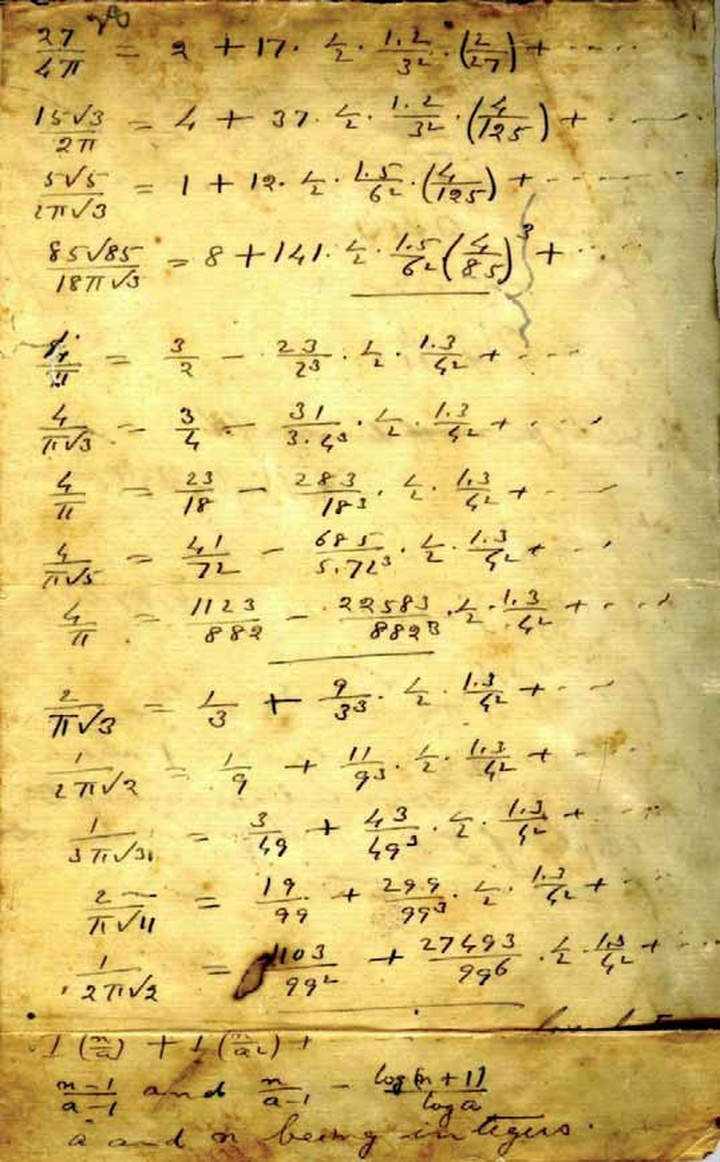 27/4π = 2 + 17 · 1/2 · 1.2/3² · (2/27) + ·····
15√3/2π = 4 + 37 · 1/2 · 1.2/3² · (4/125) + ·····
5√5/2π√3 = 1 + 12 · 1/2 · 1.5/6² · (4/125) + ·····
85√85/18π√3 = 8 + 141 · 1/2 · 1.5/6² (4/85)³ + ···
4/π = 3/2 − 23/2³ · 1/2 · 1.3/4² + ····
4/π√3 = 3/4 − 31/3.4³ · 1/2 · 1.3/4² + ····
4/π = 23/18 − 283/18³ · 1/2 · 1.3/4² + ···
4/π√5 = 41/72 − 685/5.72³ · 1/2 · 1.3/4² + ···
4/π = 1123/882 − 22583/882³ · 1/2 · 1.3/4² + ····
2/π√3 = 1/3 + 9/3³ · 1/2 · 1.3/4² + ···
1/2π√2 = 1/9 + 11/9³ · 1/2 · 1.3/4² + ···
1/3π√3 = 3/49 + 43/49³ · 1/2 · 1.3/4² + ···
2/π√11 = 19/99 + 299/99³ · 1/2 · 1.3/4² + ···
1/2π√2 = 1103/99² + 27493/99⁶ · 1/2 · 1.3/4² + ···
1(n/a) + 1(n/a²) +
n−1/a−1 and n/a−1 − log(n+1)/log a
a and n being integers.